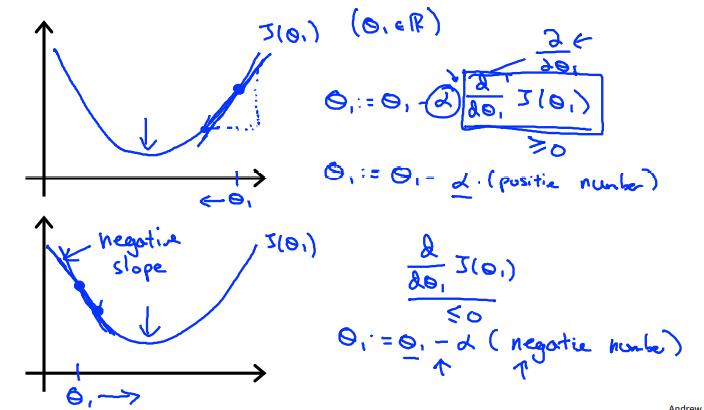 J(θ₁) (θ₁ ∈ ℝ)
∂/∂θ₁ ←
θ₁ := θ₁ - α d/dθ₁ J(θ₁)
≥ 0
θ₁ := θ₁ - α · (positie number)
← θ₁
negative slope
J(θ₁)
d/dθ₁ J(θ₁)
≤ 0
θ₁ := θ₁ - α (negatie number)
θ₁ →
Andrew